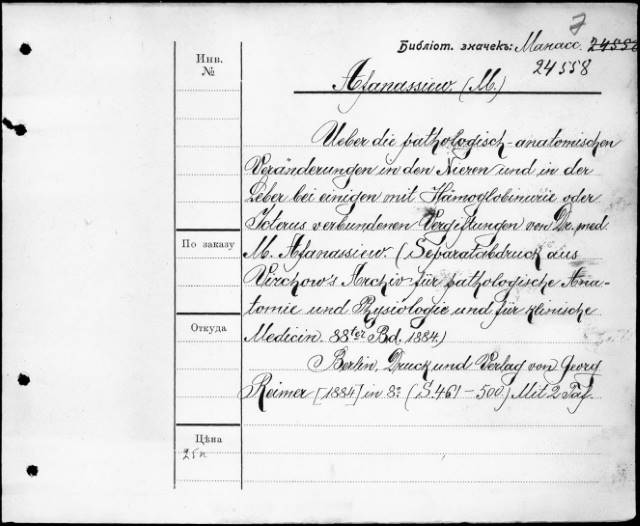 Библіот. значекъ: Манасс. 24558
24558
Инв. №
Afanassiew. (M.)
Ueber die pathologisch-anatomischen
Veränderungen in den Nieren und in der
Leber bei einigen mit Hämoglobinurie oder
Icterus verbundenen Vergiftungen von Dr. med.
По заказу
M. Afanassiew. (Separatabdruck aus
Virchow's Archiv für pathologische Ana-
tomie und Physiologie und für klinische
Откуда
Medicin. 88ter Bd. 1884.)
Berlin, Druck und Verlag von Georg
Reimer [1884] in 8º (S. 461-500.) Mit 2 Taf.
Цѣна
25 к